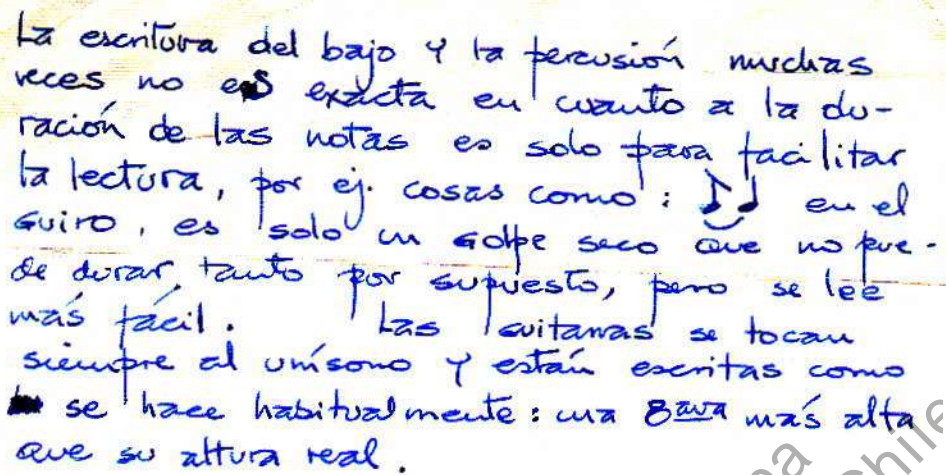 La escritura del bajo y la percusión muchas
veces no es exacta en cuanto a la du-
ración de las notas es solo para facilitar
la lectura, por ej. cosas como: ♪♩ en el
GUIRO, es solo un golpe seco que no pue-
de durar tanto por supuesto, pero se lee
más fácil. Las guitarras se tocan
siempre al unísono y están escritas como
se hace habitualmente: una 8ava más alta
que su altura real.